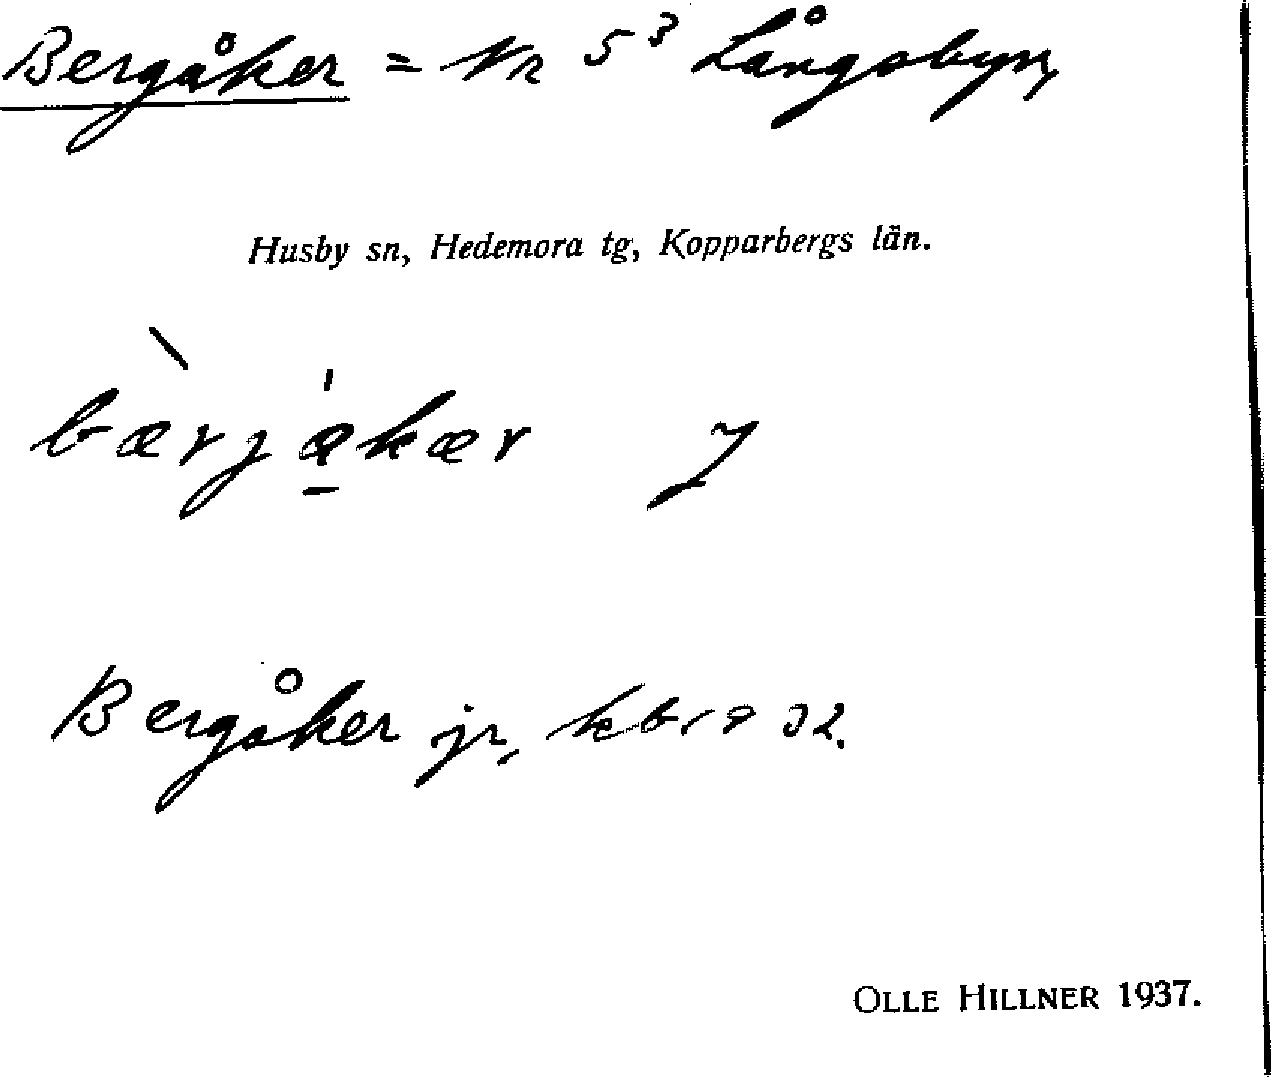 Bergåker = Nr 5³ Långsbyn,
Husby sn, Hedemora tg, Kopparbergs län.
bærjåkær
Bergåker jr, kb 1932.
OLLE HILLNER 1937.